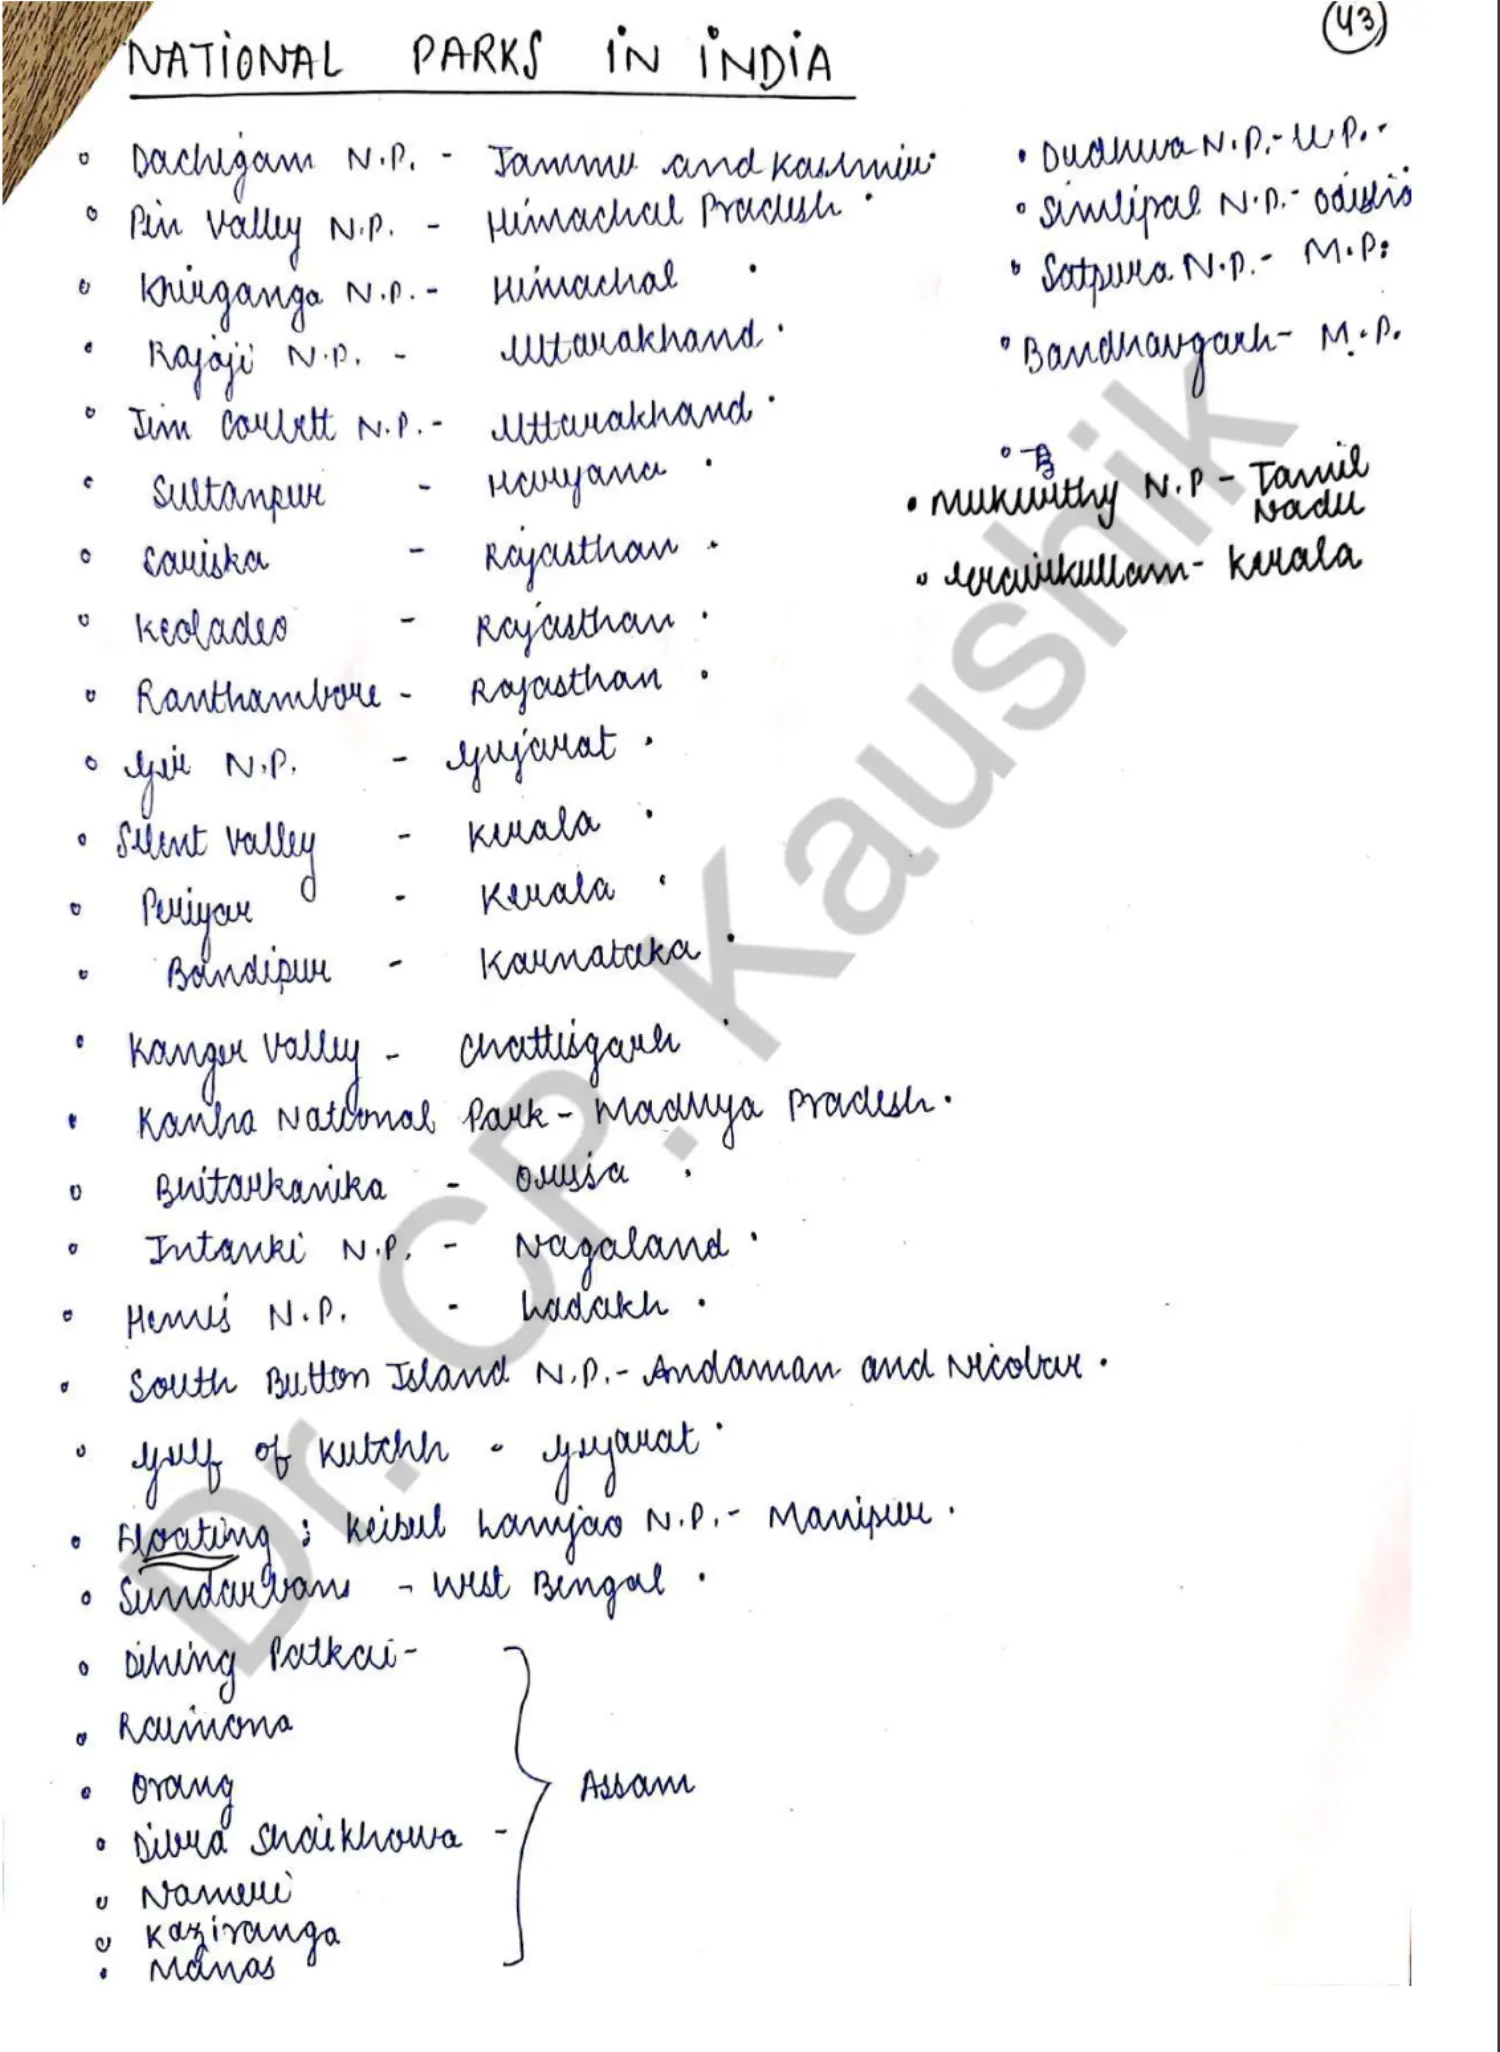 43
NATIONAL PARKS IN INDIA
Dachigam N.P. - Jammu and Kashmir.
Pin Valley N.P. - Himachal Pradesh.
Khirganga N.P. - Himachal.
Rajaji N.P. - Uttarakhand.
Jim Corbett N.P. - Uttarakhand.
Sultanpur - Haryana.
Sariska - Rajasthan.
Keoladeo - Rajasthan.
Ranthambore - Rajasthan.
Gir N.P. - Gujarat.
Silent Valley - Kerala.
Periyar - Kerala.
Bandipur - Karnataka.
Kanger Valley - Chattisgarh.
Kanha National Park - Madhya Pradesh.
Bhitarkanika - Orissa.
Intanki N.P. - Nagaland.
Hemis N.P. - Ladakh.
South Button Island N.P. - Andaman and Nicobar.
Gulf of Kutchh - Gujarat.
Floating : Keibul Lamjao N.P. - Manipur.
Sundarbans - West Bengal.
Dihing Patkai -
Raimona
Orang
Assam
Dibru Shaikhowa -
Nameri
Kaziranga
Manas
Dudhwa N.P. - U.P. -
Simlipal N.P. -
Satpura N.P. - M.P.
Bandhavgarh - M.P.
Mukurthy N.P - Tamil
Nadu
- Kerala
Dr. CP. Kaushik